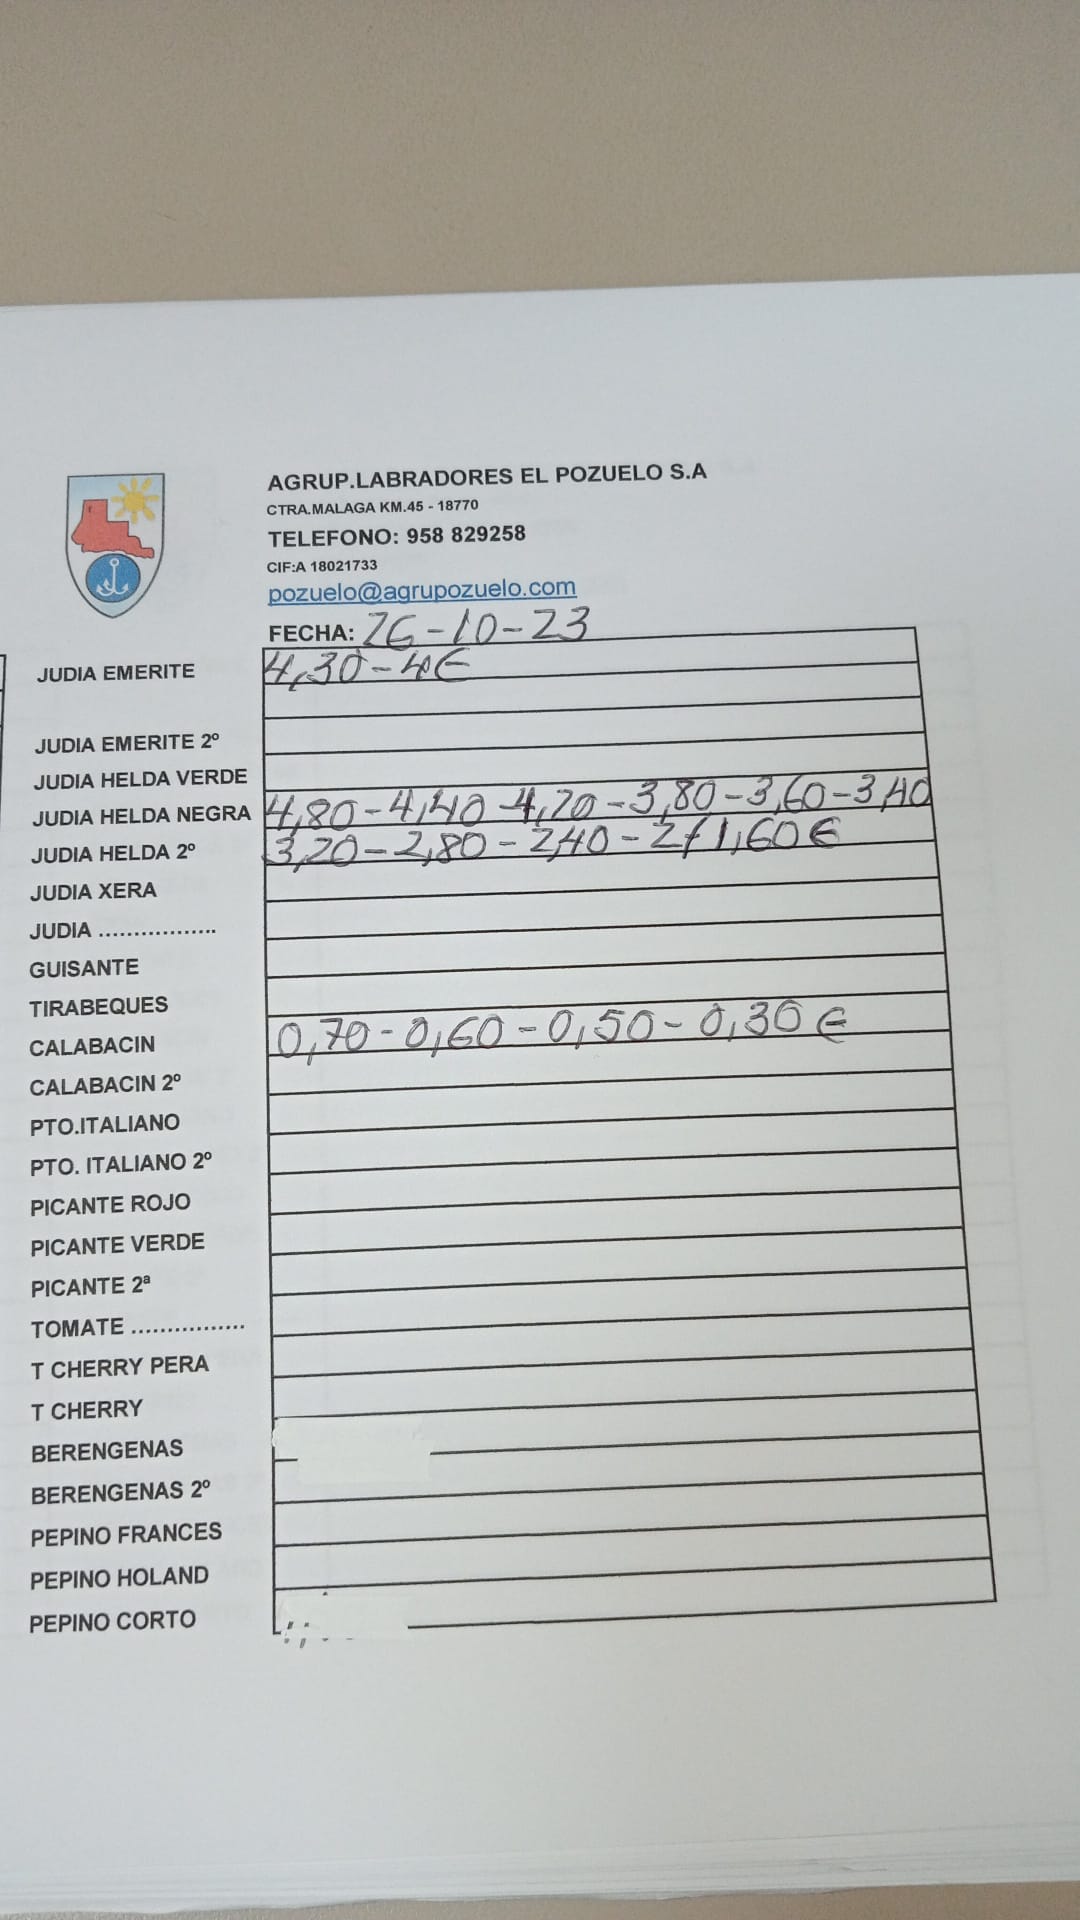 AGRUP.LABRADORES EL POZUELO S.A
CTRA.MALAGA KM.45 - 18770
TELEFONO: 958 829258
CIF:A 18021733
pozuelo@agrupozuelo.com
FECHA: 26-10-23
JUDIA EMERITE 4,30-4€
JUDIA EMERITE 2º
JUDIA HELDA VERDE
JUDIA HELDA NEGRA 4,80-4,40-4,20-3,80-3,60-3,40
JUDIA HELDA 2º 3,20-2,80-2,40-2/1,60€
JUDIA XERA
JUDIA .................
GUISANTE
TIRABEQUES
CALABACIN 0,70-0,60-0,50-0,30€
CALABACIN 2º
PTO.ITALIANO
PTO. ITALIANO 2º
PICANTE ROJO
PICANTE VERDE
PICANTE 2ª
TOMATE ................
T CHERRY PERA
T CHERRY
BERENGENAS
BERENGENAS 2º
PEPINO FRANCES
PEPINO HOLAND
PEPINO CORTO